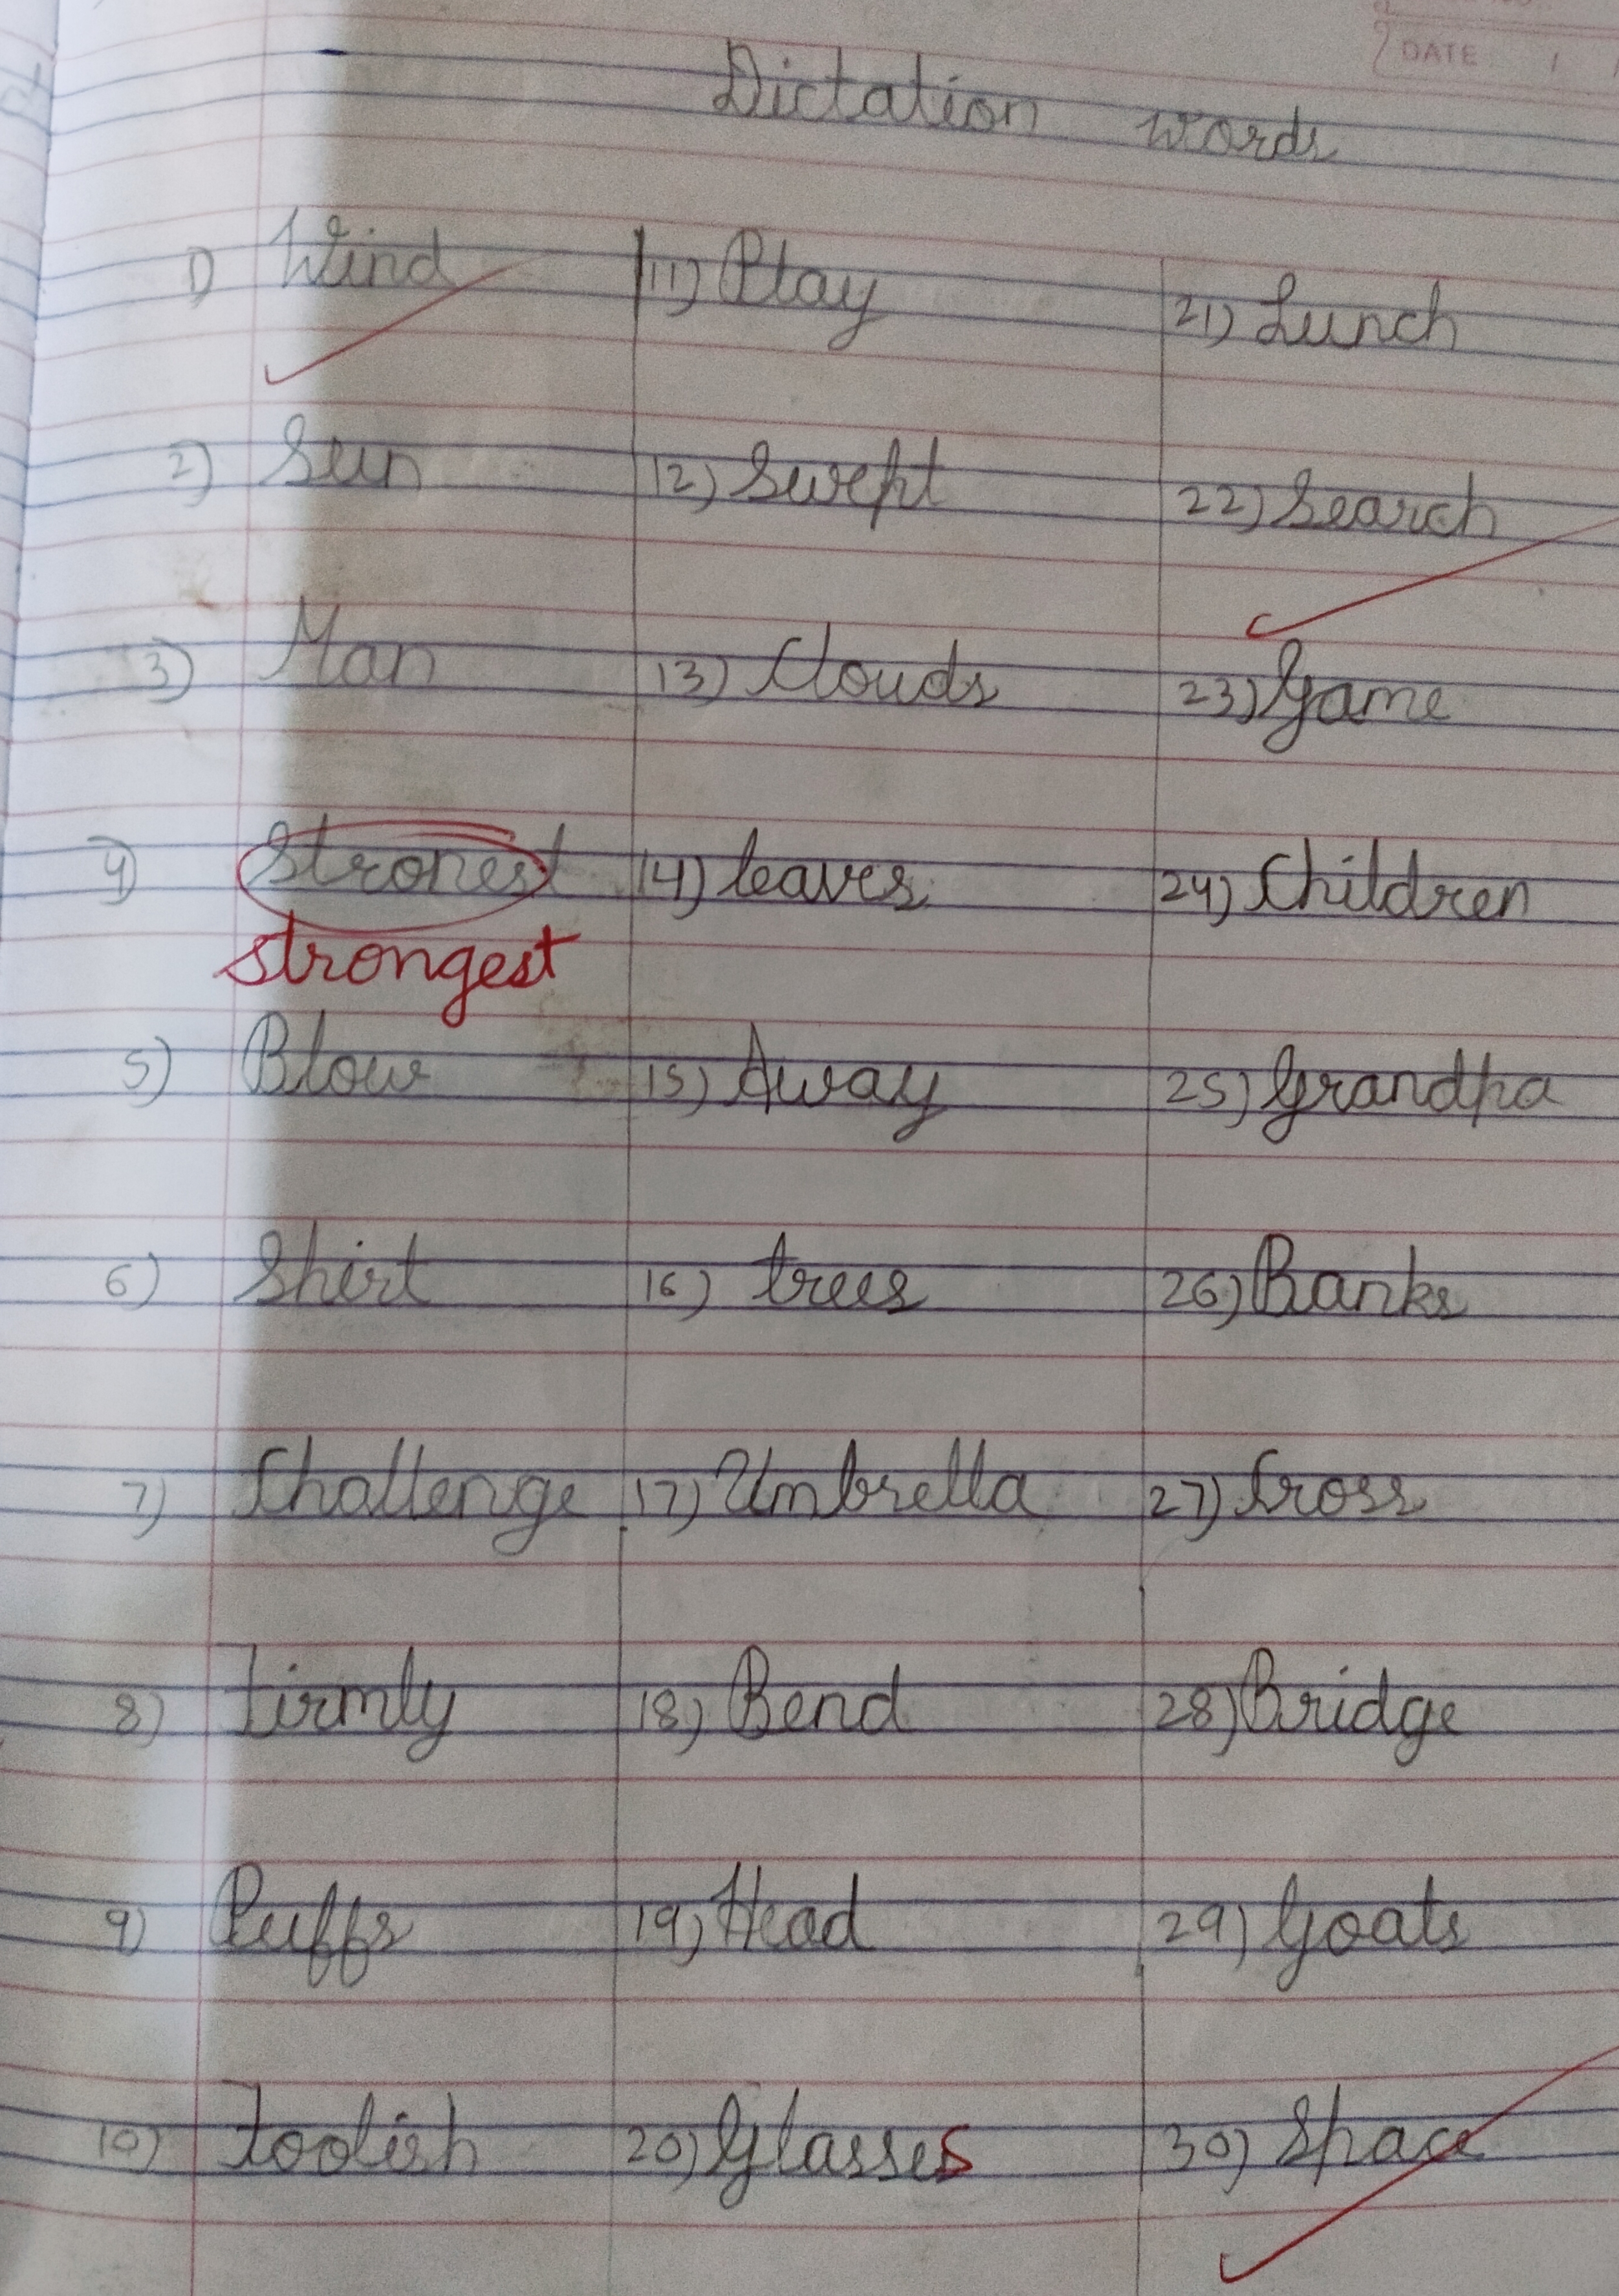 DATE / /
Dictation words
1) Wind
2) Sun
3) Man
4) Stronest
strongest
5) Blow
6) Shirt
7) Challenge
8) Firmly
9) Puffs
10) Foolish
11) Play
12) Swept
13) Clouds
14) leaves
15) Away
16) trees
17) Umbrella
18) Bend
19) Head
20) Glasses
21) Lunch
22) Search
23) Game
24) Children
25) Grandpa
26) Banks
27) Cross
28) Bridge
29) Goats
30) Space